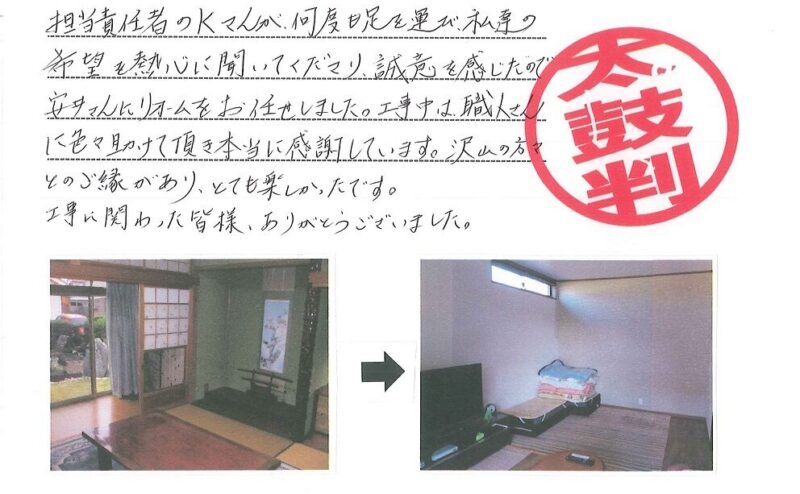 担当責任者のKさんが、何度も足を運び、私達の
希望を熱心に聞いてくださり、誠意を感じたので
安井さんにリフォームをお任せしました。工事中は、職人さん
に色々助けて頂き本当に感謝しています。沢山の方々
とのご縁があり、とても楽しかったです。
工事に関わった皆様、ありがとうございました。
太鼓判